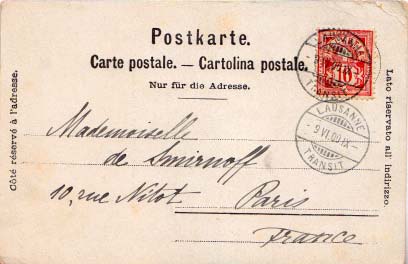 Postkarte.
Carte postale. — Cartolina postale.
Nur für die Adresse.
Côté réservé à l'adresse.
Lato riservato all' indirizzo.
10
LAUSANNE
-9 VI.00 IX-
TRANSIT
Mademoiselle
de Smirnoff
10, rue Nitot Paris
France